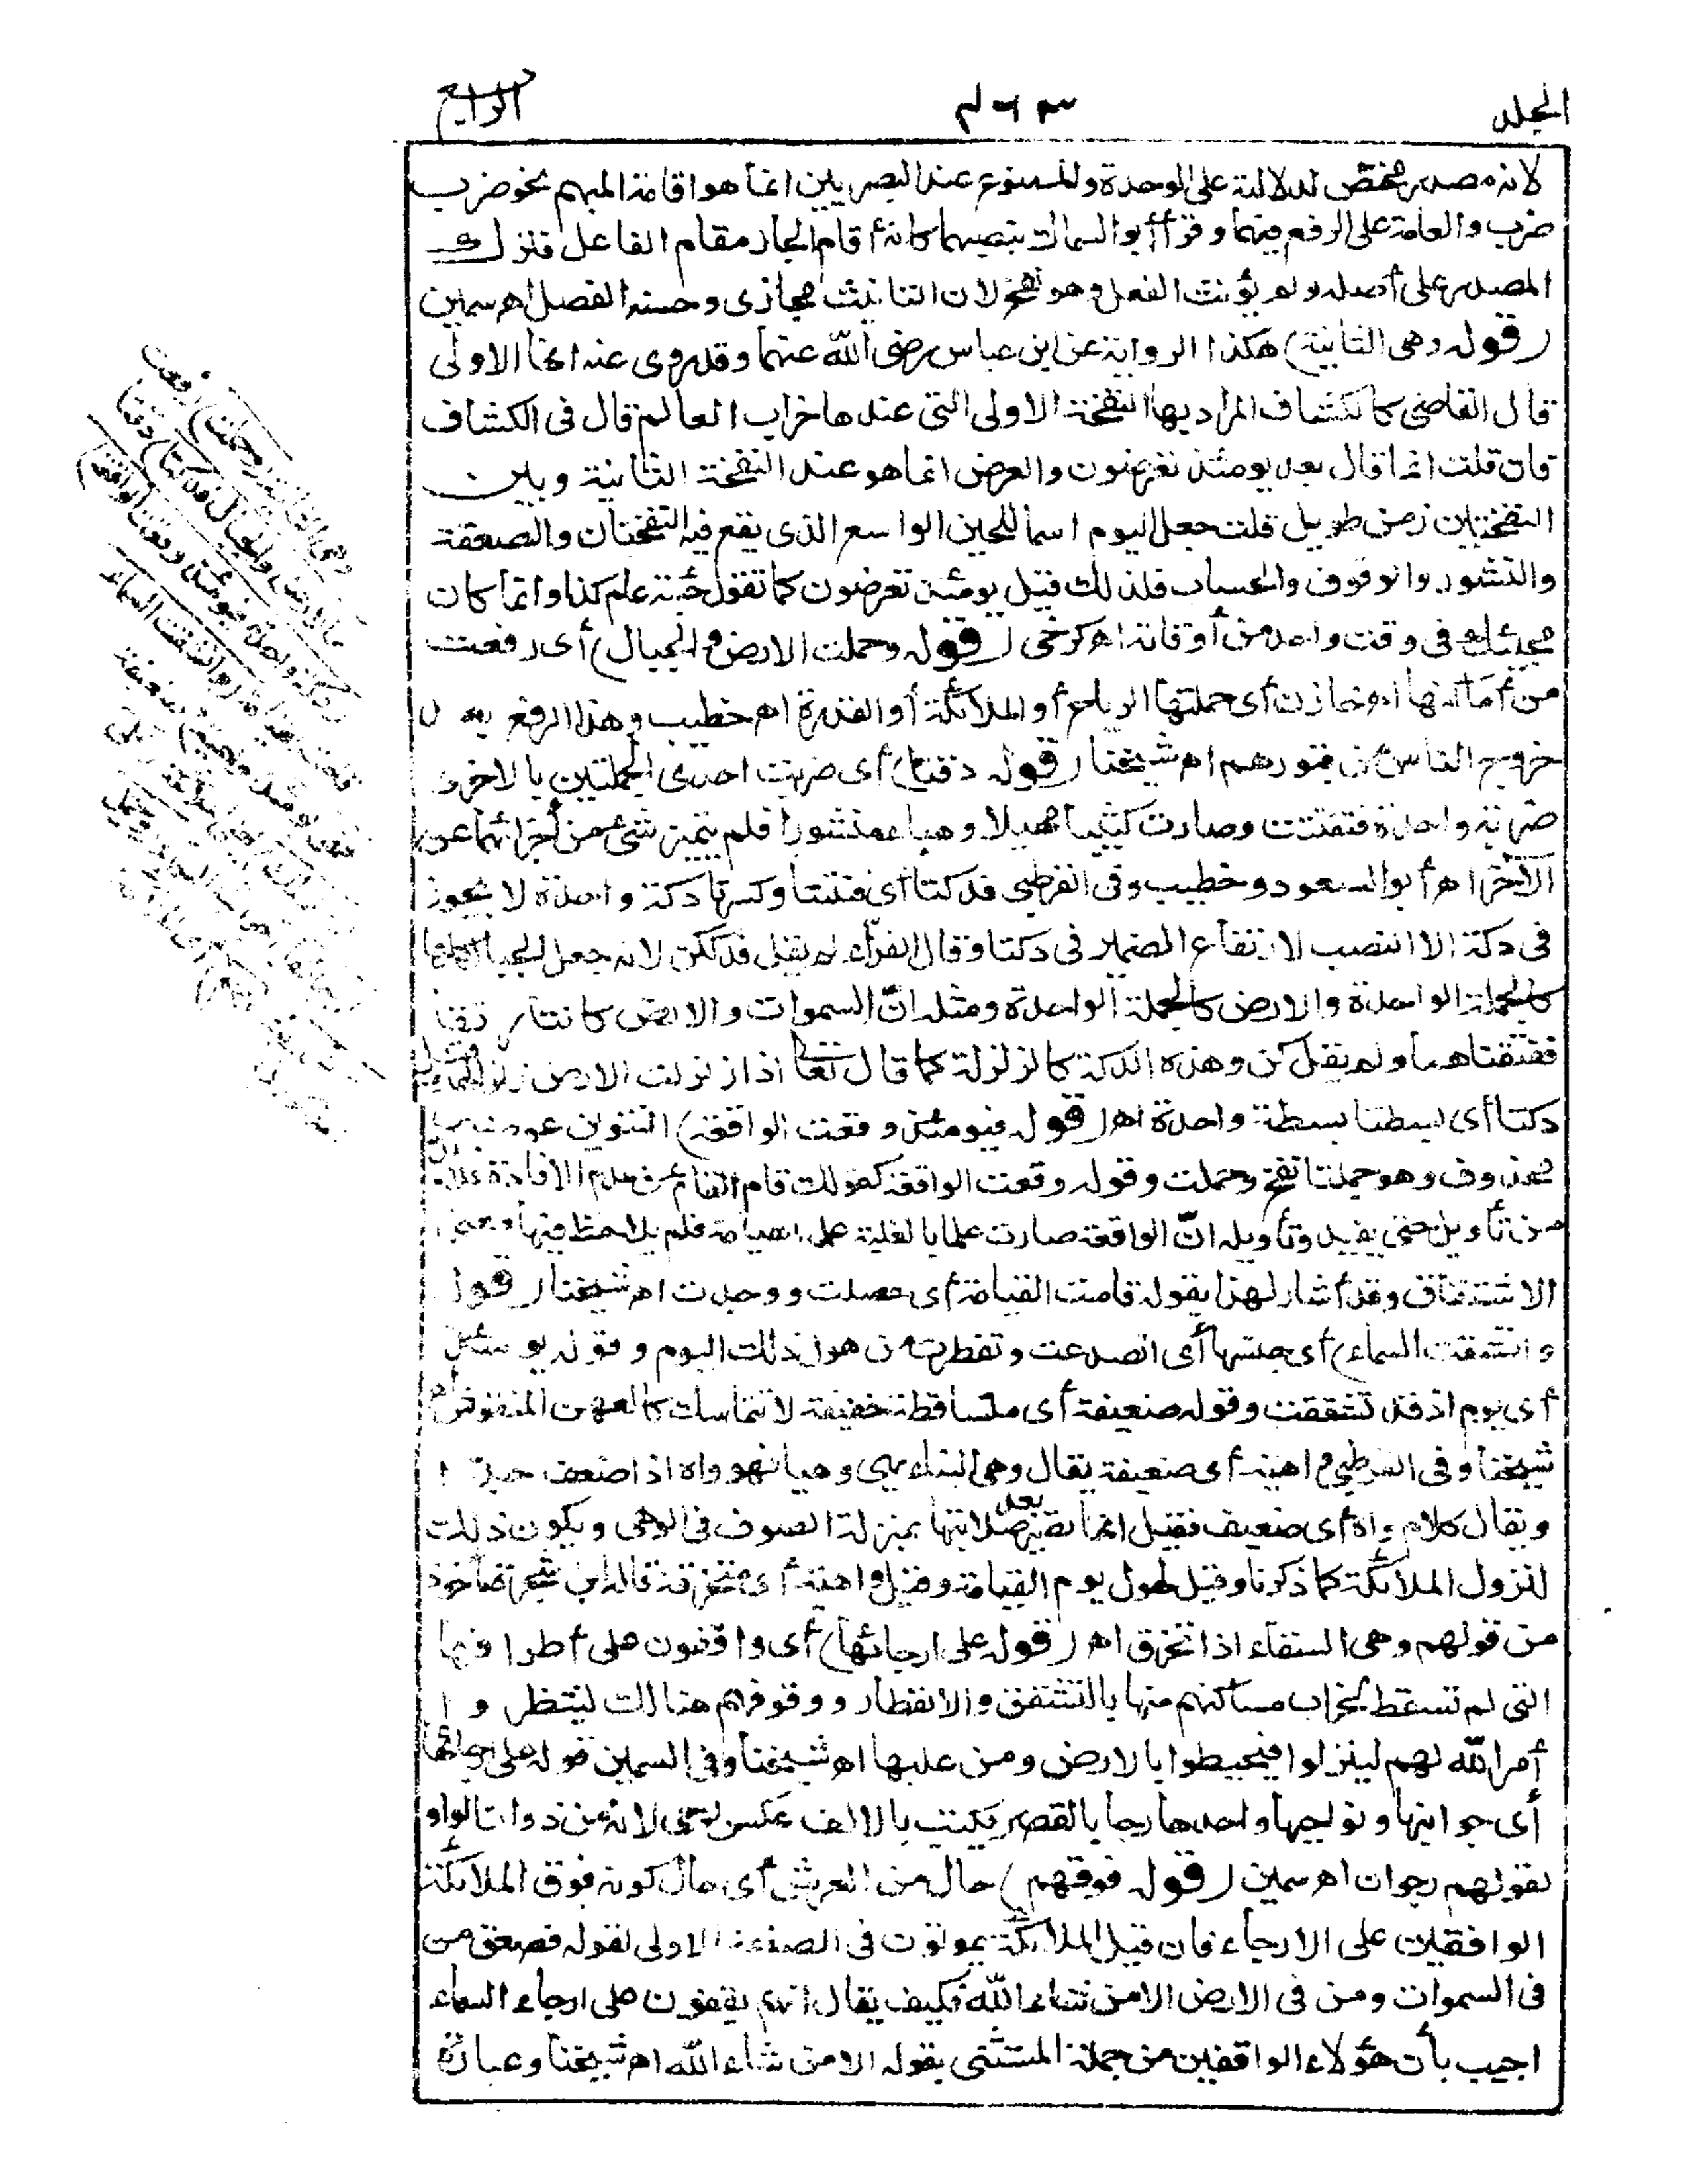 المجلد ٤٦٣ الرابع
لانه مصدر مختص لدلالته على الوحدة والممنوع عند البصريين انما هو اقامة المبهم نحو ضرب
ضرب والعامة على الرفع فيهما وقرأ أبو السمال بنصبهما كانه أقام الجار مقام الفاعل فترك
المصدر على أصله ولم يؤنث الفعل وهو نفخ لان التانيث مجازى وحسنه الفصل اهـ سمين
(قوله وهى الثانية) هكذا الرواية عن ابن عباس رضى الله عنهما وقد روى عنه انها الاولى
قال القاضى كالكشاف المراد بها النفخة الاولى التى عندها خراب العالم قال فى الكشاف
فان قلت انما قال بعد يومئذ تعرضون والعرض انما هو عند النفخة الثانية وبين
النفختين زمن طويل قلت جعل اليوم اسما للحين الواسع الذى يقع فيه النفختان والصعقة
والنشور والوقوف والحساب فلذلك قيل يومئذ تعرضون كما تقول جئته عام كذا وانما كان
مجيئك فى وقت واحد من أوقاته اهـ كرخى (قوله وحملت الارض والجبال) أى رفعت
من أماكنها أى حملتها الرياح أو الملائكة أو القدرة اهـ خطيب وهذا الرفع بعد
خروج الناس من قبورهم اهـ شيخنا (قوله دقتا) أى ضربت احدى الجملتين بالاخرى
ضربة واحدة فتفتتت وصارت كثيبا مهيلا وهباء منثورا فلم يتميز شئ من أجزائهما عن
الآخر اهـ أبو السعود وخطيب وفى القرطبى فدكتا أى فتتتا وكسرتا دكة واحدة لا يجوز
فى دكة الا النصب لارتفاع الضمير فى دكتا وقال الفراء لم يقل فدككن لانه جعل الجبال كلها
كالجملة الواحدة والارض كالجملة الواحدة ومثله انّ السموات والارض كانتا رتقا
ففتقناهما ولم يقل كن وهذه الدكة كالزلزلة كما قال تعالى اذا زلزلت الارض زلزالها وقيل
دكتا أى بسطتا بسطة واحدة اهـ (قوله فيومئذ وقعت الواقعة) التنوين عوض عن
محذوف وهو جملتا نفخ وحملت وقوله وقعت الواقعة كقولك قام القائم من عدم الافادة فلا بد
من تأويل حتى يفيد وتأويله انّ الواقعة صارت علما بالغلبة على القيامة فلم يلاحظ فيها معنى
الاشتقاق وقد أشار لهذا بقوله قامت القيامة أى حصلت ووجدت اهـ شيخنا (قوله
وانشقت السماء) أى جنسها أى انصدعت وتفطرت من هول ذلك اليوم وقوله يومئذ
أى يوم اذ قد تشققت وقوله ضعيفة أى متساقطة خفيفة لا تتماسك كالعهن المنفوش اهـ
شيخنا وفى القرطبى واهية أى ضعيفة يقال وهى البناء يهى وهيا فهو واه اذا ضعف جدا
ويقال كلام واه أى ضعيف فقيل انها تصير بعد صلابتها بمنزلة الصوف فى الوهى ويكون ذلك
لنزول الملائكة كما ذكرنا وقيل لهول يوم القيامة وقيل واهية أى متخرقة قاله ابن شجرة مأخوذ
من قولهم وهى السقاء اذا تخرق اهـ (قوله على ارجائها) أى واقفون على أطرافها
التى لم تسقط لخراب مساكنهم منها بالتشقق والانفطار ووقوفهم هنالك لينتظروا
أمر الله لهم لينزلوا فيحيطوا بالارض ومن عليها اهـ شيخنا وفى السمين قوله على ارجائها
أى جوانبها ونواحيها واحدها رجا بالقصر يكتب بالالف عكس رحى لانه من ذوات الواو
لقولهم رجوان اهـ سمين (قوله فوقهم) حال من العرش أى حال كونه فوق الملائكة
الواقفين على الارجاء فان قيل الملائكة يموتون فى الصعقة الاولى لقوله فصعق من
فى السموات ومن فى الارض الا من شاء الله فكيف يقال انهم يقفون على ارجاء السماء
اجيب بأن هؤلاء الواقفين من جملة المستثنى بقوله الا من شاء الله اهـ شيخنا وعبارة